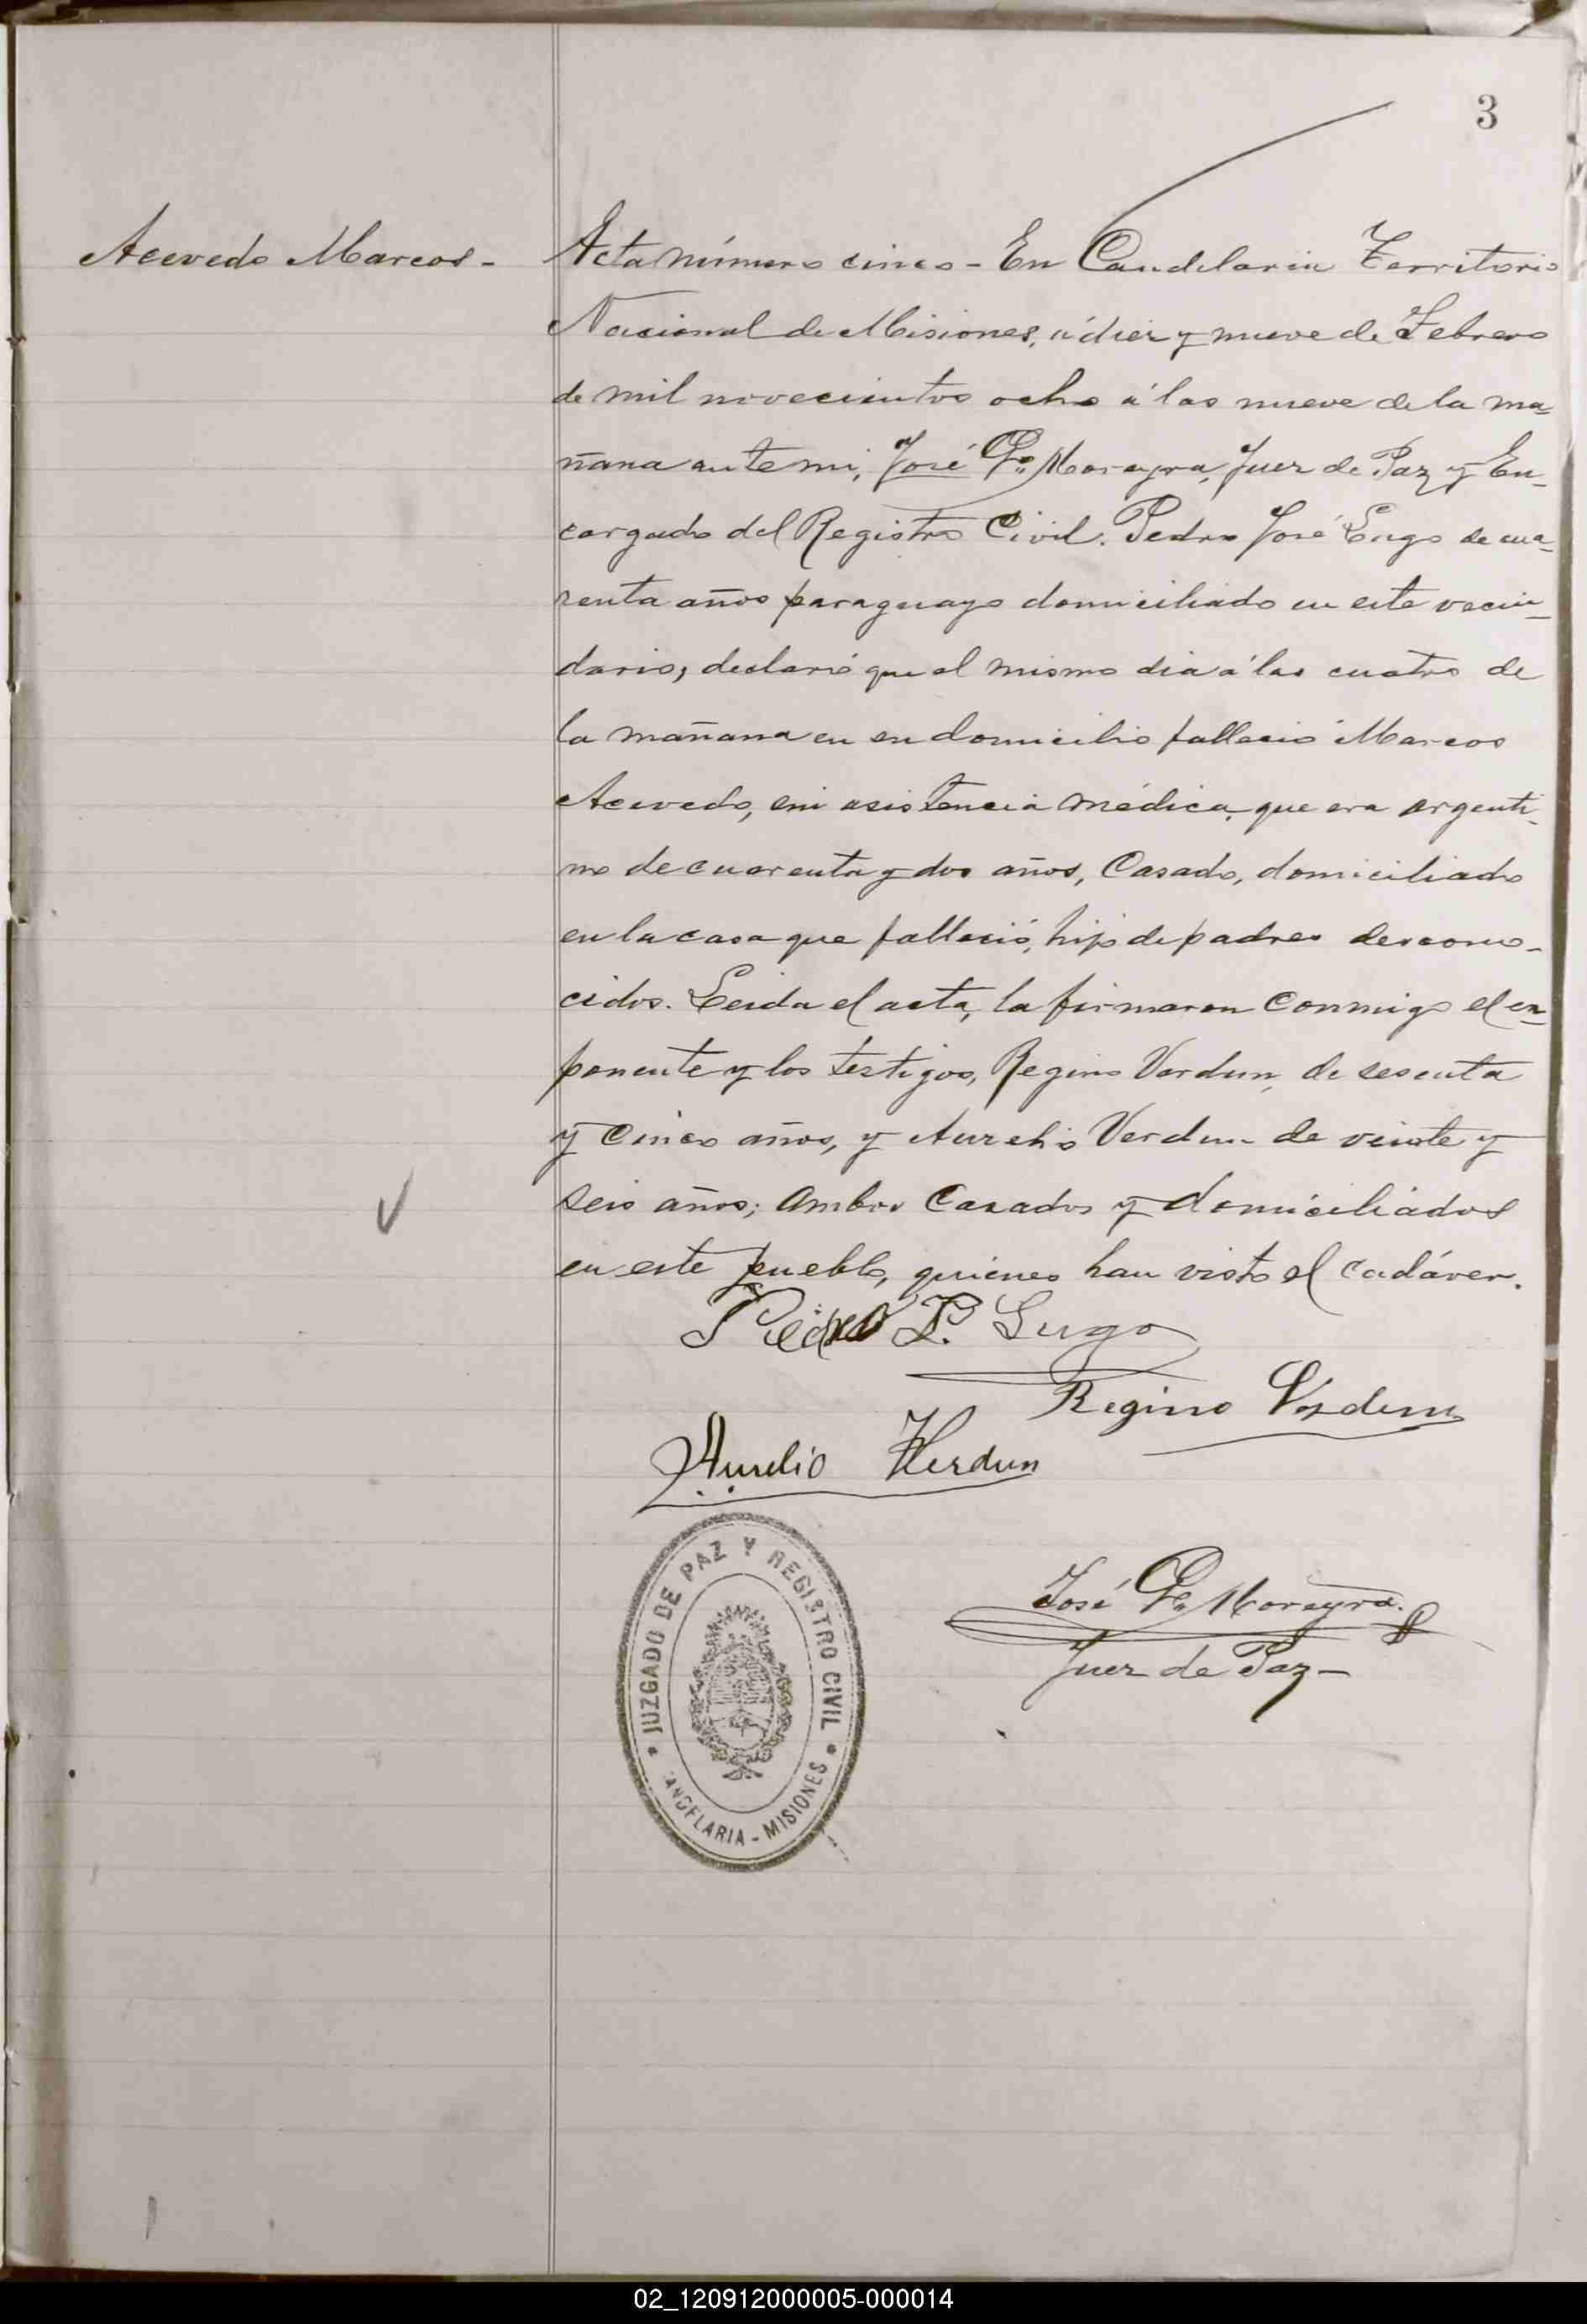 3
Acevedo Marcos -
Acta número cinco - En Candelaria Territorio
Nacional de Misiones, á diez y nueve de Febrero
de mil novecientos ocho á las nueve de la ma-
ñana ante mi, José Moreyra, Juez de Paz y En-
cargado del Registro Civil. Pedro José Lugo de cua-
renta años paraguayo domiciliado en este vecin-
dario, declaró que el mismo dia á las cuatro de
la mañana en su domicilio falleció Marcos
Acevedo, sin asistencia médica, que era argenti-
no de cuarenta y dos años, Casado, domiciliado
en la casa que falleció, hijo de padres descono-
cidos. Leida el acta, la firmaron conmigo el ex-
ponente y los testigos, Regino Verdun, de sesenta
y cinco años, y Aurelio Verdun de veinte y
seis años; ambos Casados y domiciliados
en este pueblo, quienes han visto el cadáver.
Pedro Lugo
Regino Verdun
Aurelio Verdun
José Moreyra.
Juez de Paz -
JUZGADO DE PAZ Y REGISTRO CIVIL
CANDELARIA - MISIONES
02_120912000005-000014